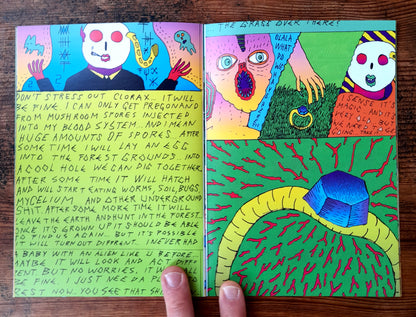 DON'T STRESS OUT CLORAX. IT WILL
BE FINE I CAN ONLY GET PREGGNAND
FROM MUSHROOM SPORES INJECTED
INTO MY BLOOD SYSTEM. AND I MEAN
HUGE AMOUNTS OF SPORES. AFTER
SOME TIME I WILL LAY AN EGG
INTO THE FOREST GROUNDS... INTO
A COOL HOLE WE CAN DIG TOGETHER.
AFTER SOME TIME IT WILL HATCH
AND WILL START EATING WORMS, SOIL, BUGS,
MYCELIUM AND OTHER UNDERGROUND
SHIT. AFTER SOME MORE TIME IT WILL
LEAVE THE EARTH AND HUNT IN THE FOREST..
ONCE ITS GROWN UP IT SHOULD BE ABLE
TO FIND US AGAIN. BUT ITS POSSIBLE
IT WILL TURN OUT DIFFRENT.. NEVER HAD
A BABY WITH AN ALIEN LIKE U BEFORE..
MAYBE IT WILL LOOK AND ACT DIFF
ENT. BUT NO WORRIES. IT WILL ALL
BE FINE. I JUST NEED A
REST NOW. YOU SEE THAT
...THE GRASS OVER THERE?
OLALA
WHAT
DO
I SENSE IT'S
MAGIC
GOING